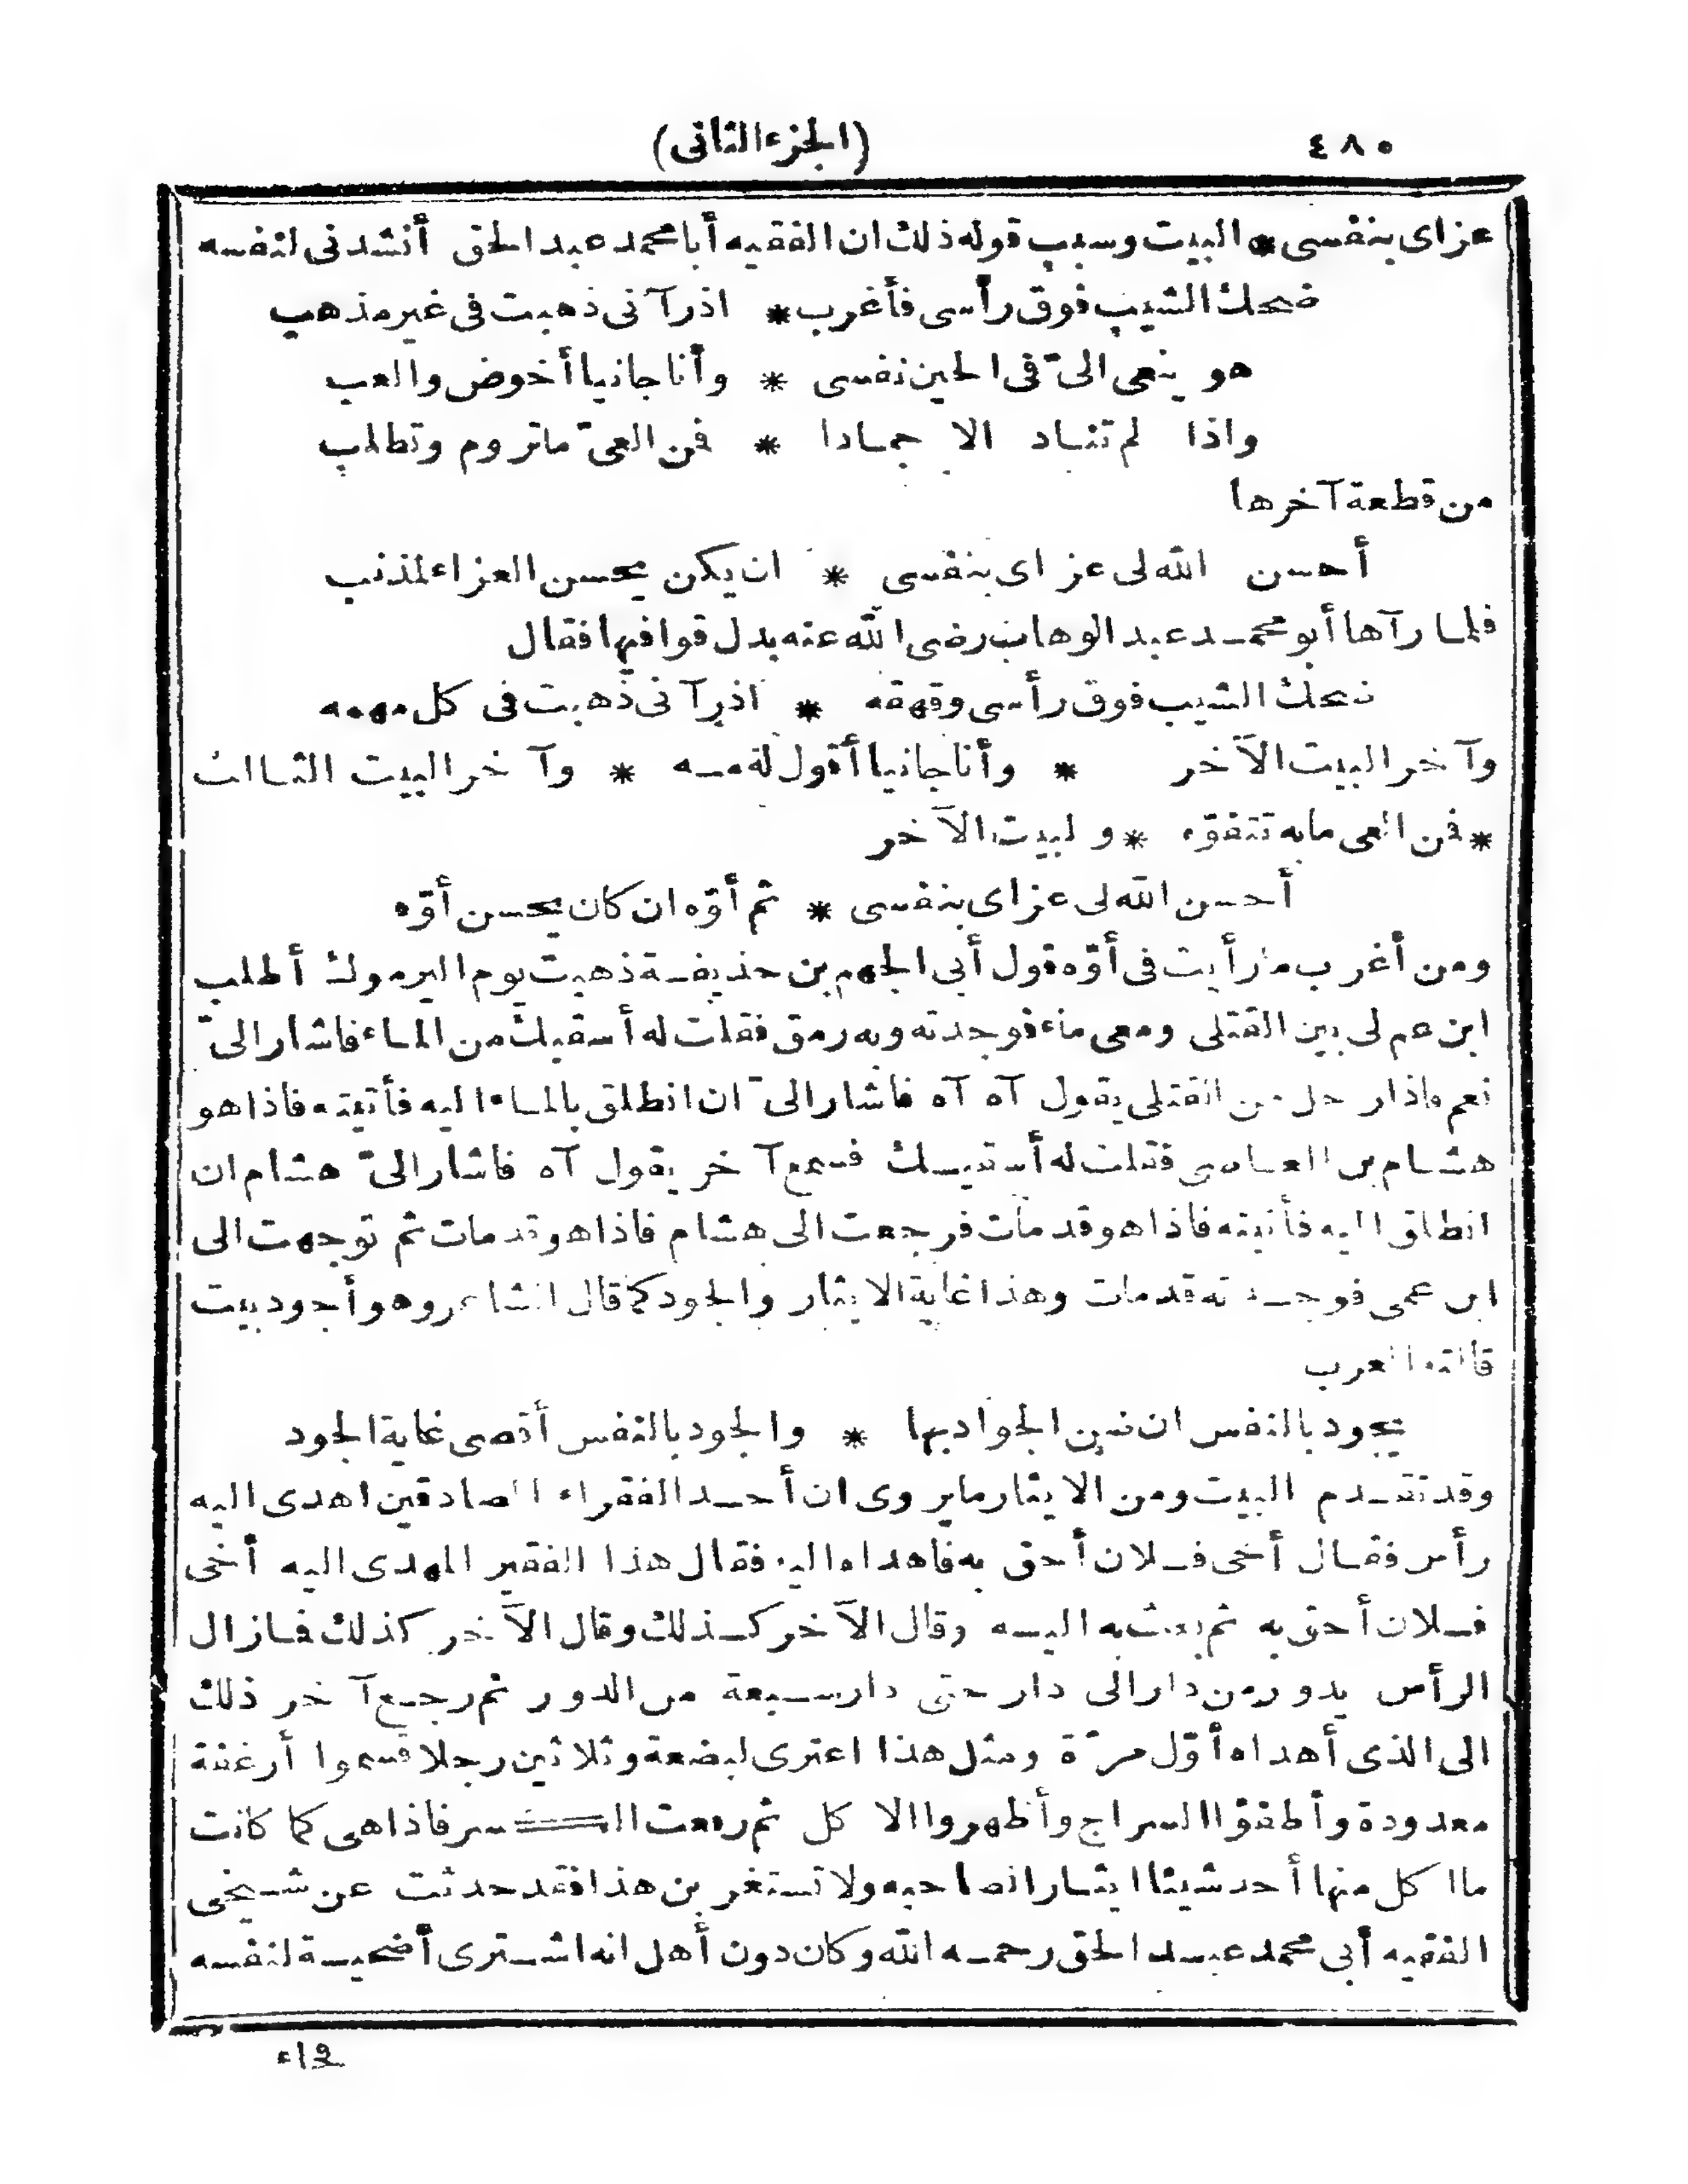 ٤٨٠
(الجزء الثانى)
عزاى بنفسى * البيت وسبب قوله ذلك ان الفقيه أبا محمد عبد الحق أنشدنى لنفسه
ضحك الشيب فوق رأسى فأغرب * اذ رآنى ذهبت فى غير مذهب
هو ينعى الىّ فى الحين نفسى * وأنا جانيا أخوض والعب
واذا لم تنـاد الا جمـادا * فمن العىّ ماتروم وتطلب
من قطعة آخرها
أحسن الله لى عزاى بنفسى * ان يكن يحسن العزاء لمذنب
فلما رآها أبو محمـد عبد الوهاب رضى الله عنه بدل قوافيها فقال
ضحك الشيب فوق رأسى وقهقه * اذ رآنى ذهبت فى كل مهمه
وآخر البيت الآخر * وأنا جانيا أقول لهمـه * وآخر البيت الثـالث
* فمن العى مابه تتفوّه * والبيت الآخر
أحسن الله لى عزاى بنفسى * ثم أوّه ان كان يحسن أوّه
ومن أغرب مارأيت فى أوّه قول أبى الجهم بن حذيفـة ذهبت يوم اليرموك أطلب
ابن عم لى بين القتلى ومعى ماء فوجدته وبه رمق فقلت له أسقيك من الماء فاشار الىّ
نعم واذا رجل من القتلى يقول آه آه فاشار الىّ ان انطلق بالمـاء اليه فأتيته فاذا هو
هشـام بن العـاصى فقلت له أسقيـك فسمع آخر يقول آه فاشار الىّ هشام ان
انطلق اليه فأتيته فاذا هو قد مات فرجعت الى هشام فاذا هو قد مات ثم توجهت الى
ابن عمى فوجـدته قد مات وهذا غاية الايثار والجود كما قال الشاعر وهو أجود بيت
قالته العرب
يجود بالنفس ان ضن الجواد بها * والجود بالنفس أقصى غاية الجود
وقد تقـدم البيت ومن الايثار ما يروى ان أحـد الفقراء الصادقين اهدى اليه
رأس فقـال أخى فـلان أحق به فاهداه اليه فقال هذا الفقير المهدى اليه أخى
فـلان أحق به ثم بعث به اليـه وقال الآخر كـذلك وقال الآخر كذلك فـازال
الرأس يدور من دار الى دار حتى دار سـبعة من الدور ثم رجـع آخر ذلك
الى الذى أهداه أوّل مرّة ومثل هذا اعترى لبضعة وثلاثين رجلا قسموا أرغفة
معدودة وأطفؤا السراج وأظهروا الا كل ثم رفعت الـكسر فاذا هى كما كانت
ما ا كل منها أحد شيئا ايثـارا لصاحبه ولا تستغرب من هذا فقد حدثت عن شـيخى
الفقيه أبى محمد عبـد الحق رحمـه الله وكان دون أهل انه اشـترى أضحيـة لنفسه